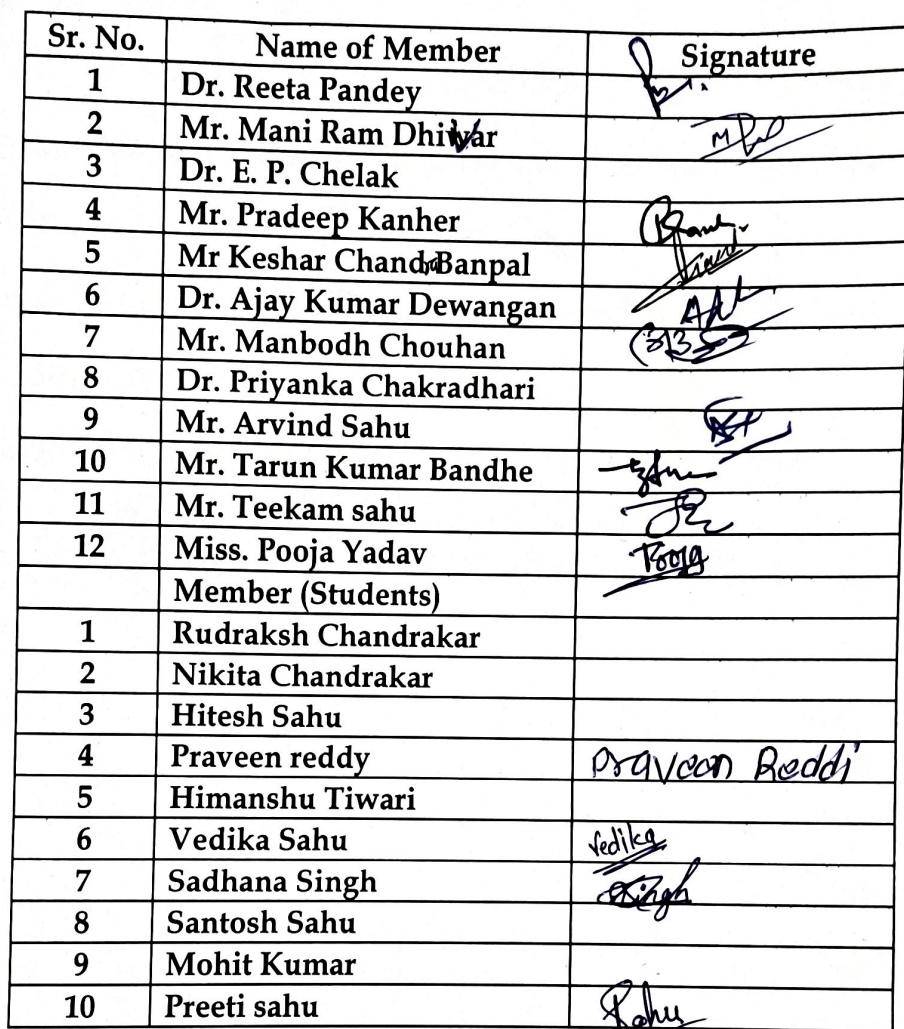 Sr. No. Name of Member Signature
1 Dr. Reeta Pandey
2 Mr. Mani Ram Dhiwar
3 Dr. E. P. Chelak
4 Mr. Pradeep Kanher
5 Mr Keshar Chandra Banpal
6 Dr. Ajay Kumar Dewangan
7 Mr. Manbodh Chouhan
8 Dr. Priyanka Chakradhari
9 Mr. Arvind Sahu
10 Mr. Tarun Kumar Bandhe
11 Mr. Teekam sahu
12 Miss. Pooja Yadav Pooja
Member (Students)
1 Rudraksh Chandrakar
2 Nikita Chandrakar
3 Hitesh Sahu
4 Praveen reddy Praveen Reddi
5 Himanshu Tiwari
6 Vedika Sahu Vedika
7 Sadhana Singh Singh
8 Santosh Sahu
9 Mohit Kumar
10 Preeti sahu